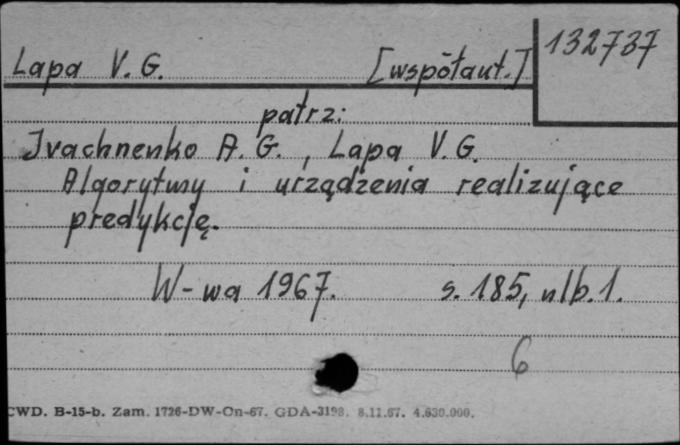 132737
Lapa V. G. [współaut.]
patrz:
Ivachnenko A. G., Lapa V. G.
Algorytmy i urządzenia realizujące
predykcję.
W-wa 1967. s. 185, nlb. 1.
6
CWD. B-15-b. Zam. 1726-DW-On-67. GDA-3198. 8.11.67. 4.630.000.